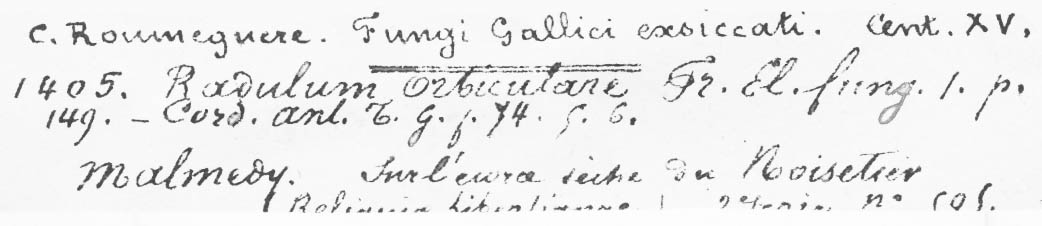 C. Roumeguere. Fungi Gallici exsiccati. Cent. XV.
1405. Radulum orbiculare Fr. El. fung. 1. p.
149. - Cord. anl. T. G. f. 74. f. 6.
Malmedy. Sur l'écorce sèche du Noisetier
(Reliquiæ Libertianæ) 2e Série n°